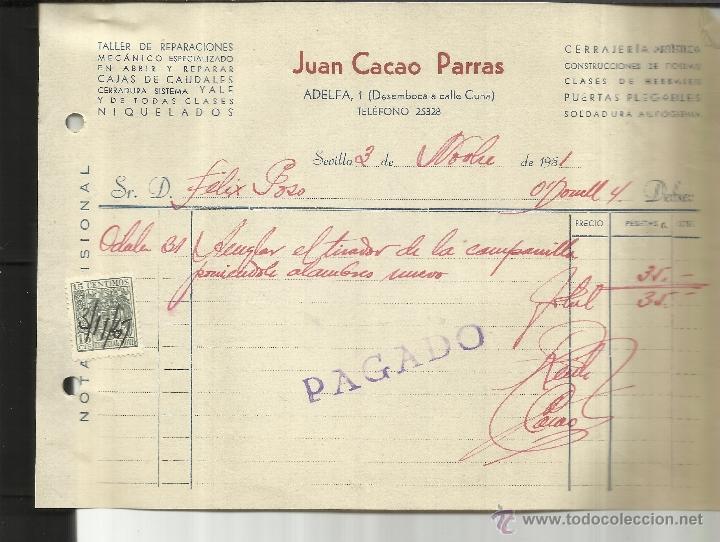 TALLER DE REPARACIONES
MECÁNICO ESPECIALIZADO
EN ABRIR Y REPARAR
CAJAS DE CAUDALES
CERRADURA SISTEMA YALE
Y DE TODAS CLASES
NIQUELADOS
Juan Cacao Parras
ADELFA, 1 (Desemboca a calle Cuna)
TELÉFONO 25328
CERRAJERÍA ARTÍSTICA
CONSTRUCCIONES DE
CLASES DE HERRAJES
PUERTAS PLEGABLES
SOLDADURA AUTÓGENA
Sevilla 3 de Novbre de 1951
Sr. D. Félix Poso O'Donell 4 Debe:
PRECIO PESETAS CTS.
31 Arreglar el tirador de la campanilla
poniéndole alambres nuevo 35.-
Total 35.-
PAGADO
Recibí
Cacao
NOTA
ISIONAL
15 CENTIMOS
www.todocoleccion.net